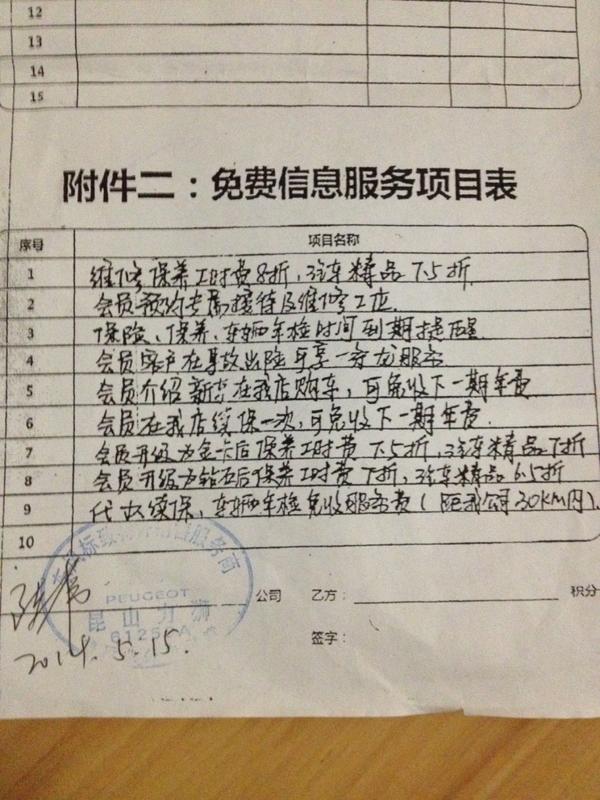 12
13
14
15
附件二：免费信息服务项目表
序号 项目名称
1 维修保养工时费8折，汽车精品7.5折
2 会员预约专属接待及维修工位
3 保险、保养、车辆年检时间到期提醒
4 会员客户在事故出险可享一条龙服务
5 会员介绍新客在我店购车，可免收下一期年费
6 会员在我店续保一次，可免收下一期年费
7 会员升级为金卡后保养工时费7.5折，汽车精品7折
8 会员升级为钻石后保养工时费7折，汽车精品6.5折
9 代办续保、车辆年检免收服务费（距我公司30KM内）
10
PEUGEOT
昆山力狮
公司 乙方： 积分
签字：
2014.5.15.